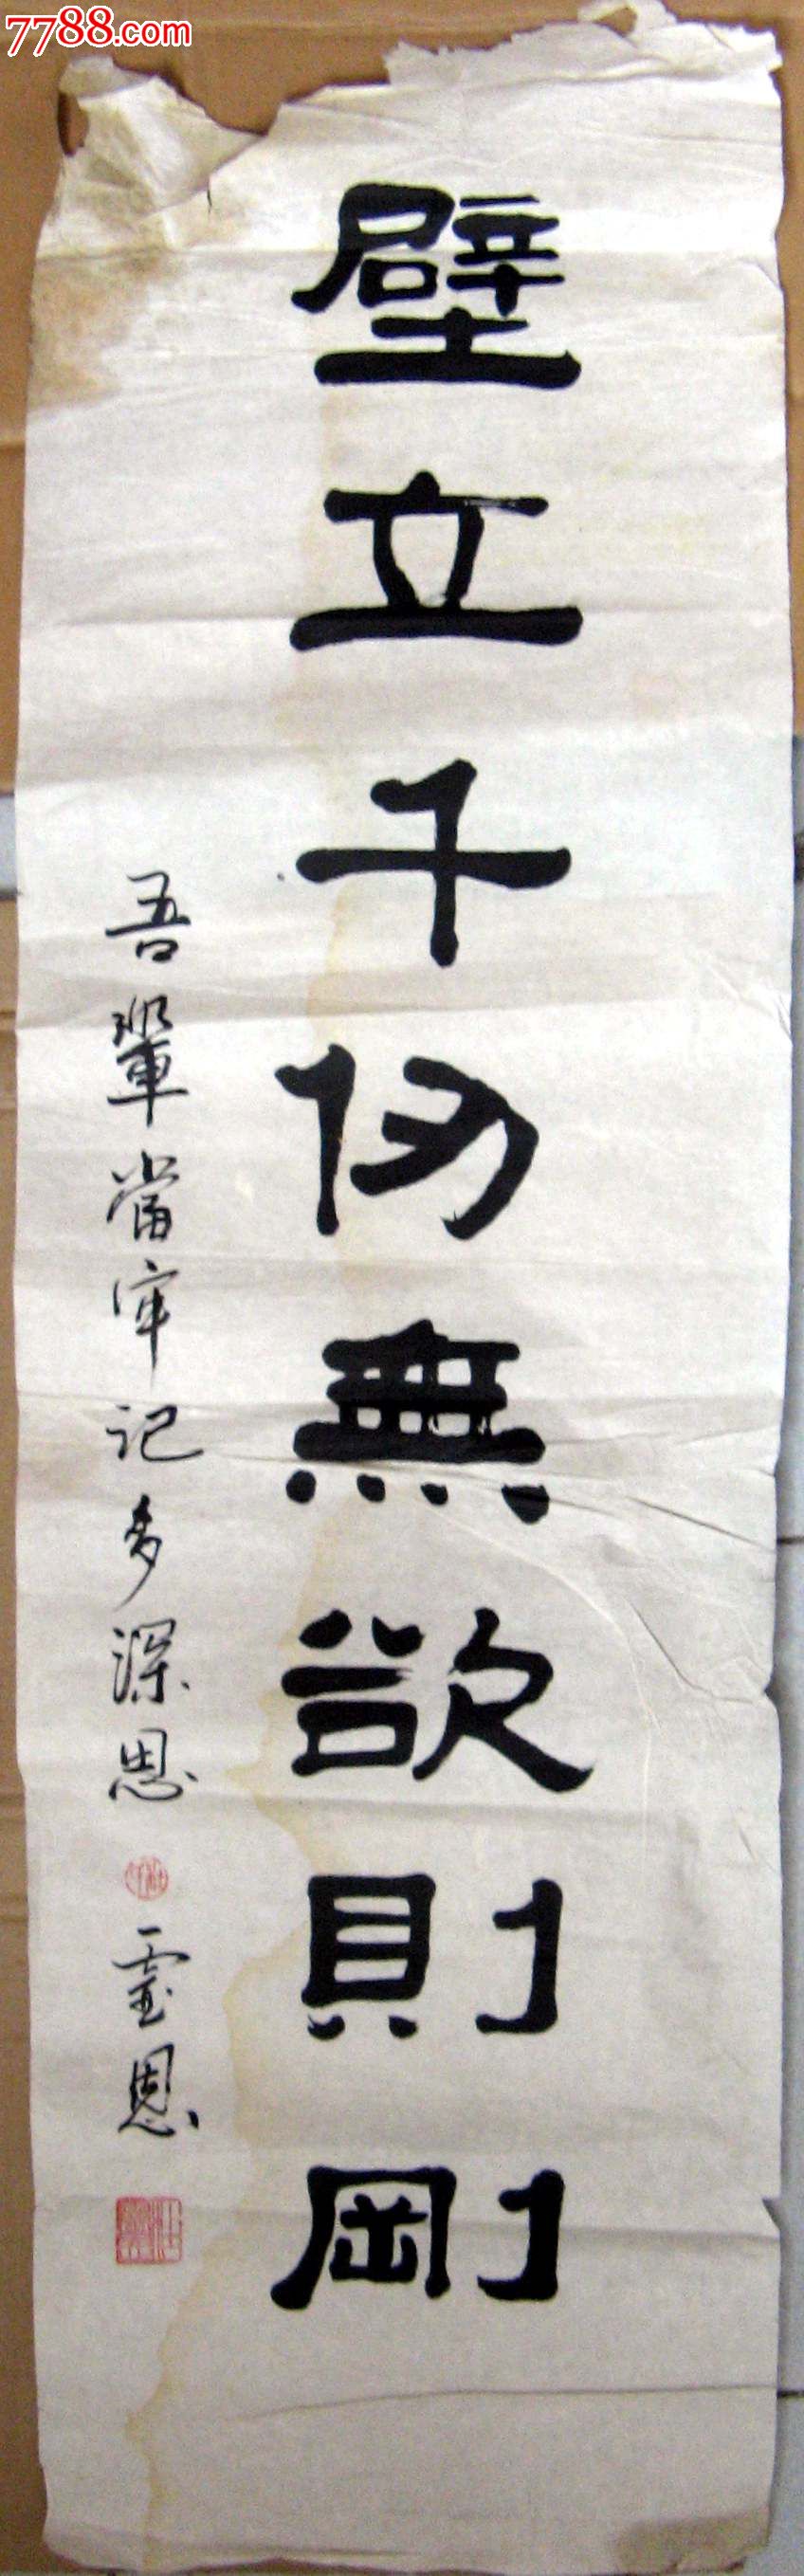 7788.com
壁立千仞無欲則剛
吾輩當牢記多深思
雲恩